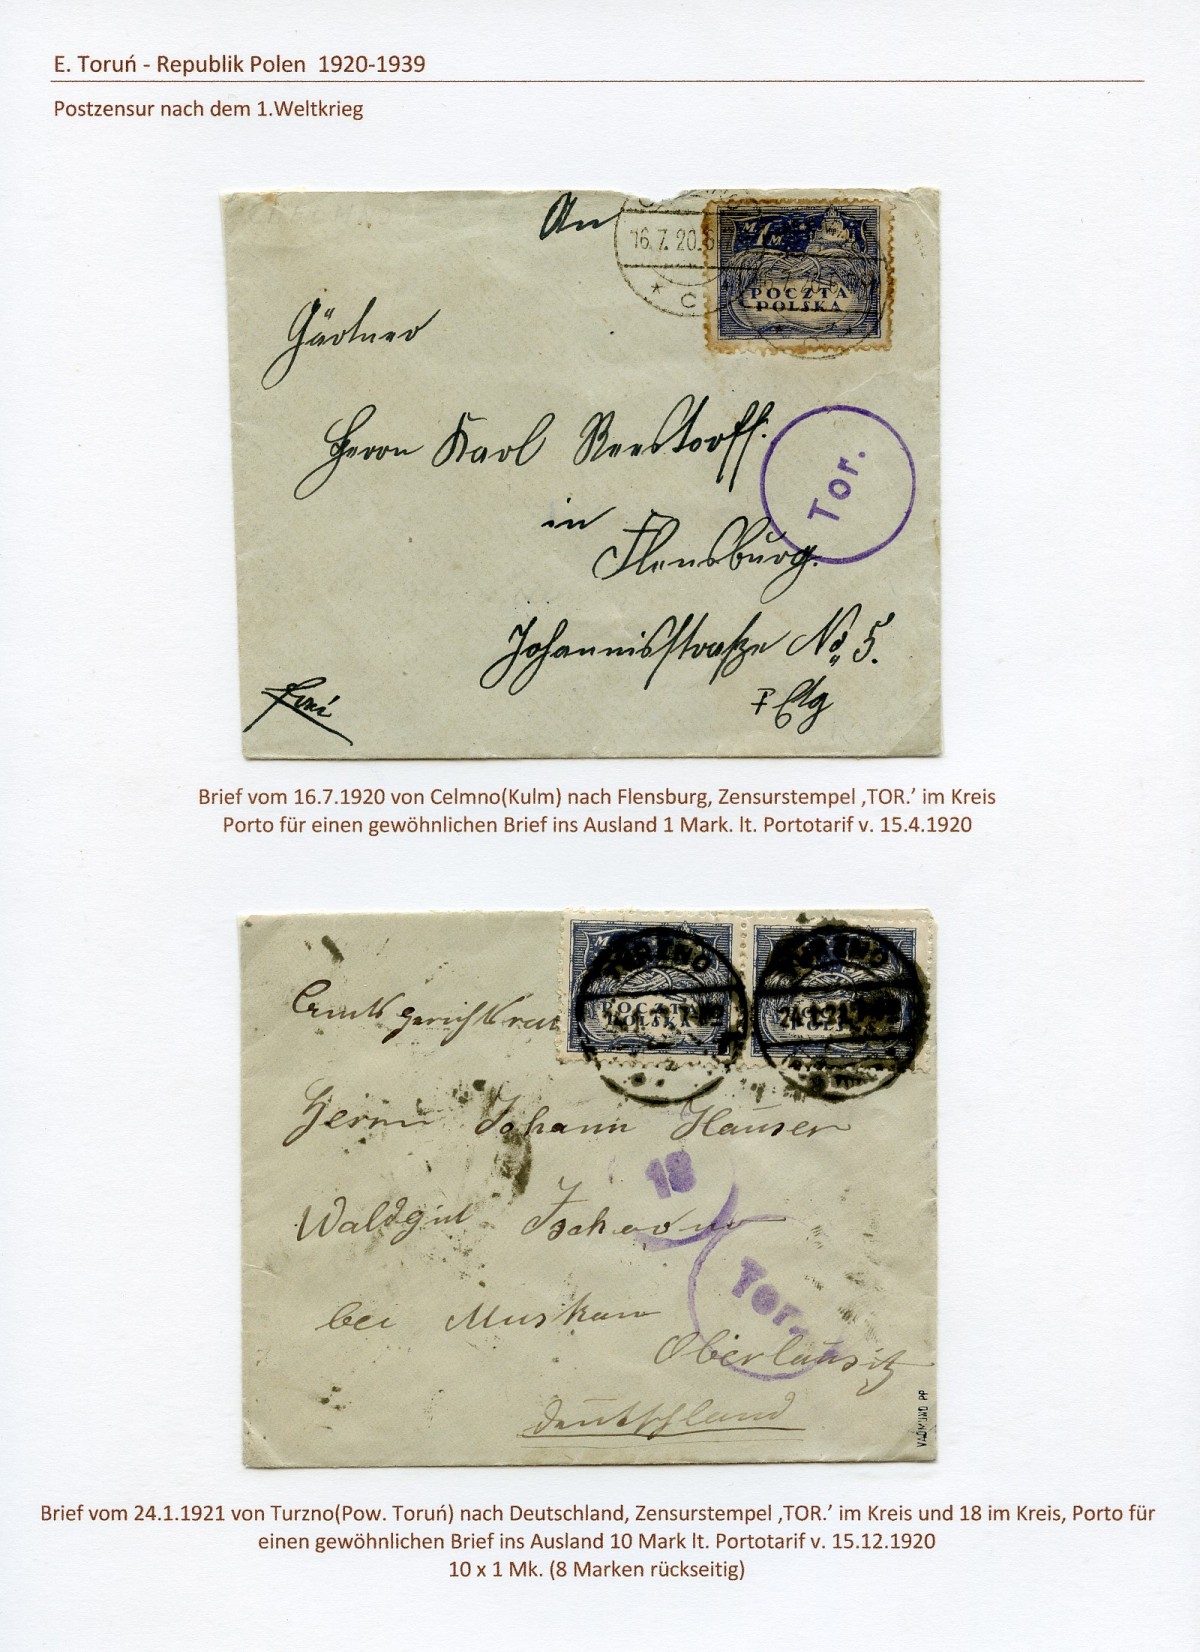 E. Toruń - Republik Polen 1920-1939
Postzensur nach dem 1.Weltkrieg
An
16.7.20.6
* C
M 1 M
POCZTA
POLSKA
Gärtner
Herrn Karl Reestorff.
Tor.
in
Flensburg.
Johannisstraße No 5.
Flg
Brief vom 16.7.1920 von Celmno(Kulm) nach Flensburg, Zensurstempel ‚TOR.’ im Kreis
Porto für einen gewöhnlichen Brief ins Ausland 1 Mark. lt. Portotarif v. 15.4.1920
TURZNO
POCZTA
POLSKA
TURZNO
24.1.21
Amtsgerichtsrat
Herrn Johann Hauser
18
Waldgut Tschornow
Tor.
bei Muskau
Oberlausitz
Deutschland
VALMUND PP
Brief vom 24.1.1921 von Turzno(Pow. Toruń) nach Deutschland, Zensurstempel ‚TOR.’ im Kreis und 18 im Kreis, Porto für
einen gewöhnlichen Brief ins Ausland 10 Mark lt. Portotarif v. 15.12.1920
10 x 1 Mk. (8 Marken rückseitig)